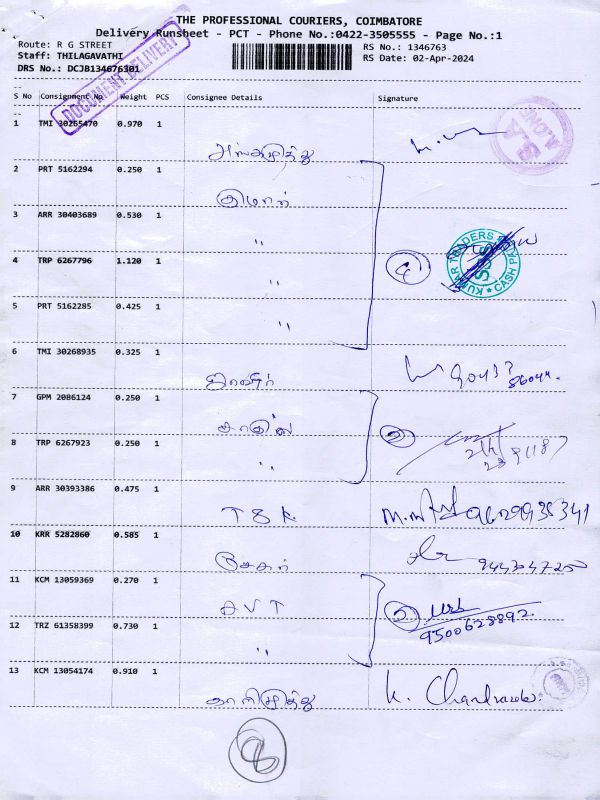 THE PROFESSIONAL COURIERS, COIMBATORE
Delivery Runsheet - PCT - Phone No.:0422-3505555 - Page No.:1
Route: R G STREET
RS No.: 1346763
Staff: THILAGAVATHI
RS Date: 02-Apr-2024
DRS No.: DCJB134676301
DOCUMENT DELIVERY
S No Consignment No Weight PCS Consignee Details Signature
1 TMI 30265470 0.970 1
2 PRT 5162294 0.250 1 குமார்
3 ARR 30403689 0.530 1 "
4 TRP 6267796 1.120 1 "
KUMAR TRADERS
CASH
5 PRT 5162285 0.425 1 "
6 TMI 30268935 0.325 1
7 GPM 2086124 0.250 1
8 TRP 6267923 0.250 1 "
9 ARR 30393386 0.475 1 T S K
10 KRR 5282860 0.585 1 சேகர்
11 KCM 13059369 0.270 1 S V T 2
9500628892
12 TRZ 61358399 0.730 1 "
13 KCM 13054174 0.910 1 காளிமுத்து